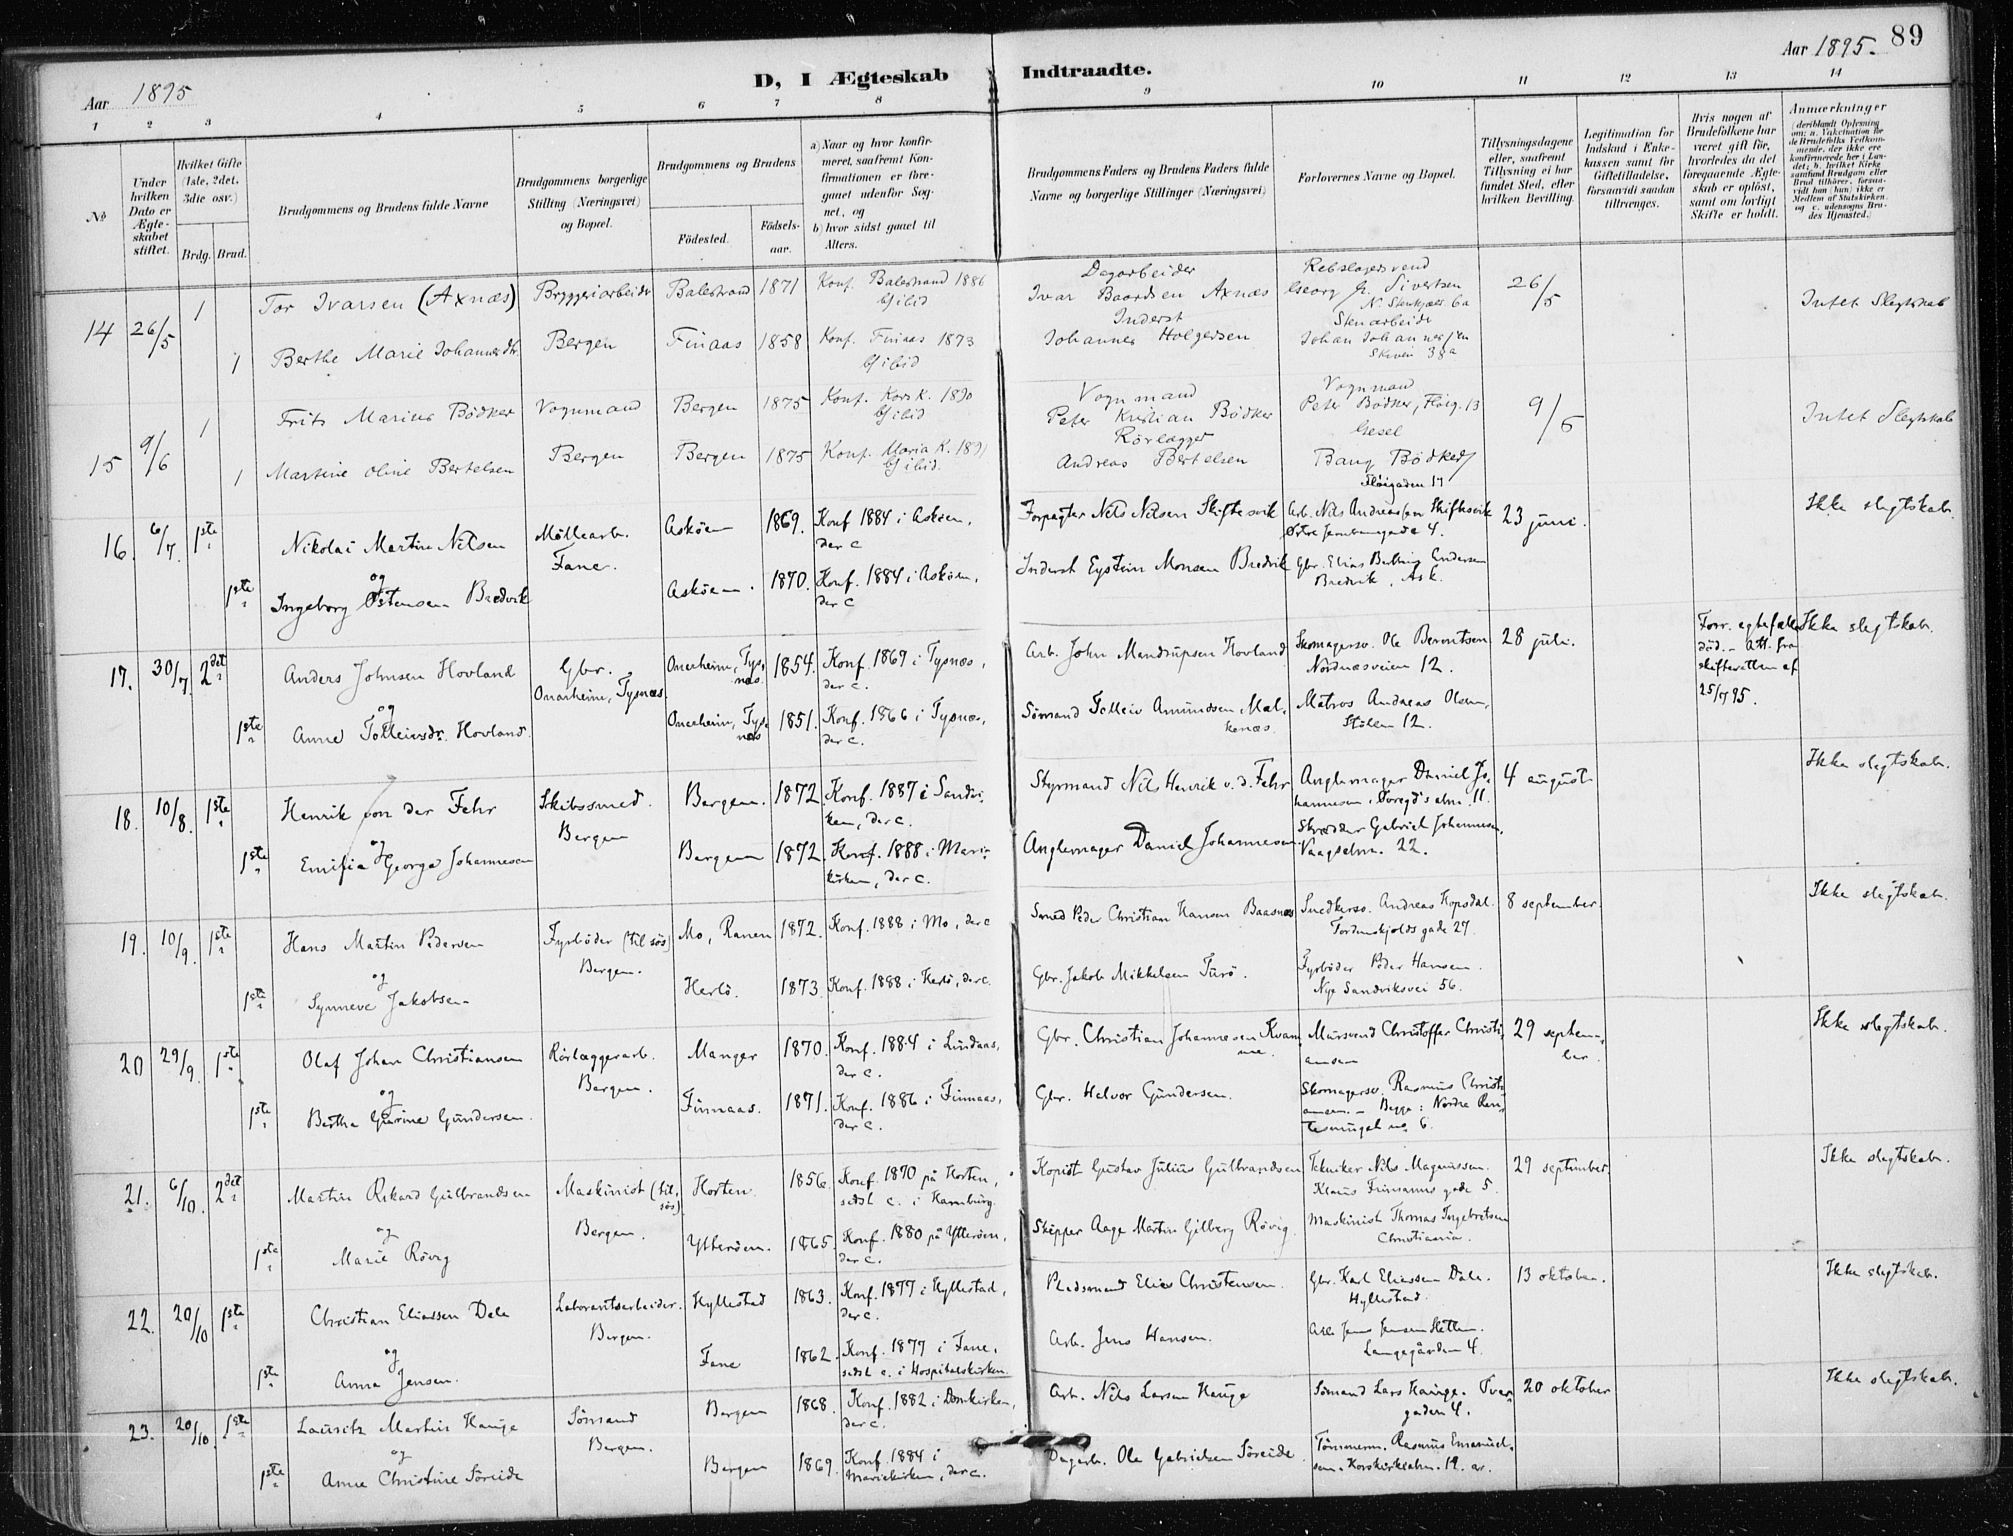 89
Aar 1895.
Aar 1895
D, I Ægteskab Indtraadte.
1 2 3 4 5 6 7 8 9 10 11 12 13 14
No
Under hvilken Dato er Ægteskabet stiftet.
Hvilket Gifte (1ste, 2det, 3die osv.)
Brdg. Brud.
Brudgommens og Brudens fulde Navne
Brudgommens borgerlige Stilling (Næringsvei) og Bopæl.
Brudgommens og Brudens
Fødested. Fødselsaar.
a) Naar og hvor konfirmeret, saafremt Konfirmationen er foregaaet udenfor Sognet, og
b) hvor sidst gaaet til Alters.
Brudgommens Faders og Brudens Faders fulde Navne og borgerlige Stillinger (Næringsvei)
Forlovernes Navne og Bopæl.
Tillysningsdagene eller, saafremt Tillysning ei har fundet Sted, efter hvilken Bevilling.
Legitimation for Indskud i Enkekassen samt for Giftetilladelse, forsaavidt saadan tiltrænges.
Hvis nogen af Brudefolkene har været gift før, hvorledes da det foregaaende Ægteskab er opløst, samt om lovligt Skifte er holdt.
Anmærkninger (deriblandt Oplysning om: a. Vakcination for de Brudefolks Vedkommende, der ikke ere konfirmerede her i Landet; b. hvilket Kirkesamfund Brudgom eller Brud tilhører, forsaavidt han (hun) ikke er Medlem af Statskirken, og c. udensogns Brudes Hjemsted.)
14 26/5 1 Tor Ivarsen (Axnæs) Bryggeriarbeider Balestrand 1871 Konf. Balestrand 1886 Dagarbeider Ivar Baardsen Axnæs Rebslagersvend Georg G. Sivertsen 26/5 Intet Slegtskab
1 Berthe Marie Johannesdtr. Bergen Finaas 1858 Konf. Finaas 1873 Inderst Johannes Holgersen Stenarbeider Johan Johannessen
15 9/6 1 Frits Marius Bödker Vognmand Bergen 1875 Konf. Kors K. 1890 Vognmand Peter Kristian Bödker Vognmand Peter Bödker, Flöig. 13 9/6 Intet Slegtskab
1 Martine Oline Bertelsen Bergen Bergen 1875 Konf. Maria K. 1891 Rörlægger Andreas Bertelsen Bang Bödker, Flöigaden 17
16. 6/7. 1ste Nikolai Martin Nilsen Møllearb. Askøen 1869. Konf 1884 i Askøen, der c Forpagter Nils Nilsen Skiftesvik Arb. Nils Andreassen Skiftesvik 23 juni. Ikke slegtskab.
og
1ste Ingeborg Østensen Bredvik Fane. Askøen. 1870. Konf. 1884 i Askøen, der c Inderst Eystein Monsen Bredvik Gbr. Elias Andersen Bredvik, Ask.
17. 30/7. 2det Anders Johnsen Hovland Gbr. Onarheim, Tysnæs Onarheim, Tysnæs 1854. Konf. 1869 i Tysnæs, der c. Arb. John Mandrupsen Hovland Skomagersv. Ole Berentsen Nordnæsveien 12. 28 juli. Forr. egtefælle död. – Att. fra skifteretten af 25/7 95. Ikke slegtskab.
og
1ste Anne Tolleivsdr. Hovland. Onarheim, Tysnæs 1851. Konf. 1866 i Tysnæs, der c. Sømand Tolleiv Amundsen Malkenæs Matros Andreas Olsen, Stølen 12.
18. 10/8. 1ste Henrik von der Fehr Skibssmed. Bergen. 1872. Konf. 1887 i Sandviken, der c. Styrmand Nils Henrik v. d. Fehr Anglemager Daniel Johannesen, Øvregd's alm. 11. 4 august. Ikke slegtskab.
og
1ste Emilia Georga Johannesen Bergen Bergen 1872. Konf. 1888 i Mariakirken, der c. Anglemager Daniel Johannesen Skrædder Gabriel Johannesen, Vaagsalm. 22.
19. 10/9. 1ste Hans Martin Pedersen Fyrbøder (til søs) Mo, Ranen 1872. Konf. 1888 i Mo, der c Smed Peder Christian Hansen Baasmos Snedkersv. Andreas Hopsdal. Tordenskjolds gade 27. 8 september. Ikke slegtskab.
og
1ste Synneve Jakobsen Bergen. Herlö. 1873. Konf. 1888 i Herlö, der c. Gbr. Jakob Mikkelsen Turö. Fyrbøder Peder Hansen. Nye Sandviksvei 56.
20 29/9. 1ste Olaf Johan Christiansen Rörlæggerarb. Manger 1870. Konf. 1884 i Lindaas, der c. Gbr. Christian Johannesen Kvamme. Mursvend Christoffer Christiansen 29 september. Ikke slegtskab.
og
1ste Bertha Gurine Gundersen. Bergen. Finnaas. 1871. Konf. 1886 i Finnaas, der c. Gbr. Halvor Gundersen. Skomagersv. Rasmus Christiansen. – Begge: Nordre no. 6.
21. 6/10. 2det Martin Rikard Gulbrandsen Maskinist (til søs). Horten. 1856. Konf. 1870 på Horten, sidst c. i Hamburg. Kopist Gustav Julius Gulbrandsen Tekniker Nils Magnussen. Klaus gade 5. 29 september. Ikke slegtskab.
og
1ste Marie Rövig Bergen. Ytterøen. 1865. Konf. 1880 på Ytterøen, der c. Skipper Aage Martin Gilberg Rövig. Maskinist Thomas Ingebretsen Christiania.
22. 20/10 1ste Christian Eliassen Dale Laborantsarbeider. Hyllestad 1863. Konf. 1877 i Hyllestad, der c. Pladsmand Elias Christensen. Gbr. Karl Eliassen Dale. Hyllestad. 13 oktober. Ikke slegtskab.
og
1ste Anna Jensen. Bergen. Fane 1862. Konf. 1877 i Fane, sidst c. i Hospitalskirken Arb. Jens Hansen. Arb. Jens Jensen Sletten. Langegården 4.
23. 20/10. 1ste Lauritz Martin Hauge Sömand Bergen 1868. Konf. 1882 i Domkirken, der c. Arb. Nils Larsen Hauge Sömand Lars Hauge. Tvergaden 4. 20 oktober Ikke slegtskab.
og
1ste Anne Christine Söreide Bergen. Bergen 1869. Konf. 1884 i Mariekirken, der c. Dagarb. Ole Gabrielsen Söreide. Tømmerm. Rasmus Emanuelsen. Korskirkealm. 12.